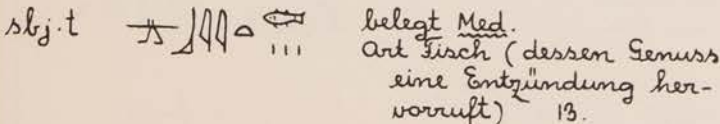 sbj.t 𓊄𓃀𓇋𓇋𓏏𓆛𓏥 belegt Med.
Art Fisch (dessen Genuss
eine Entzündung her-
vorruft) 13.